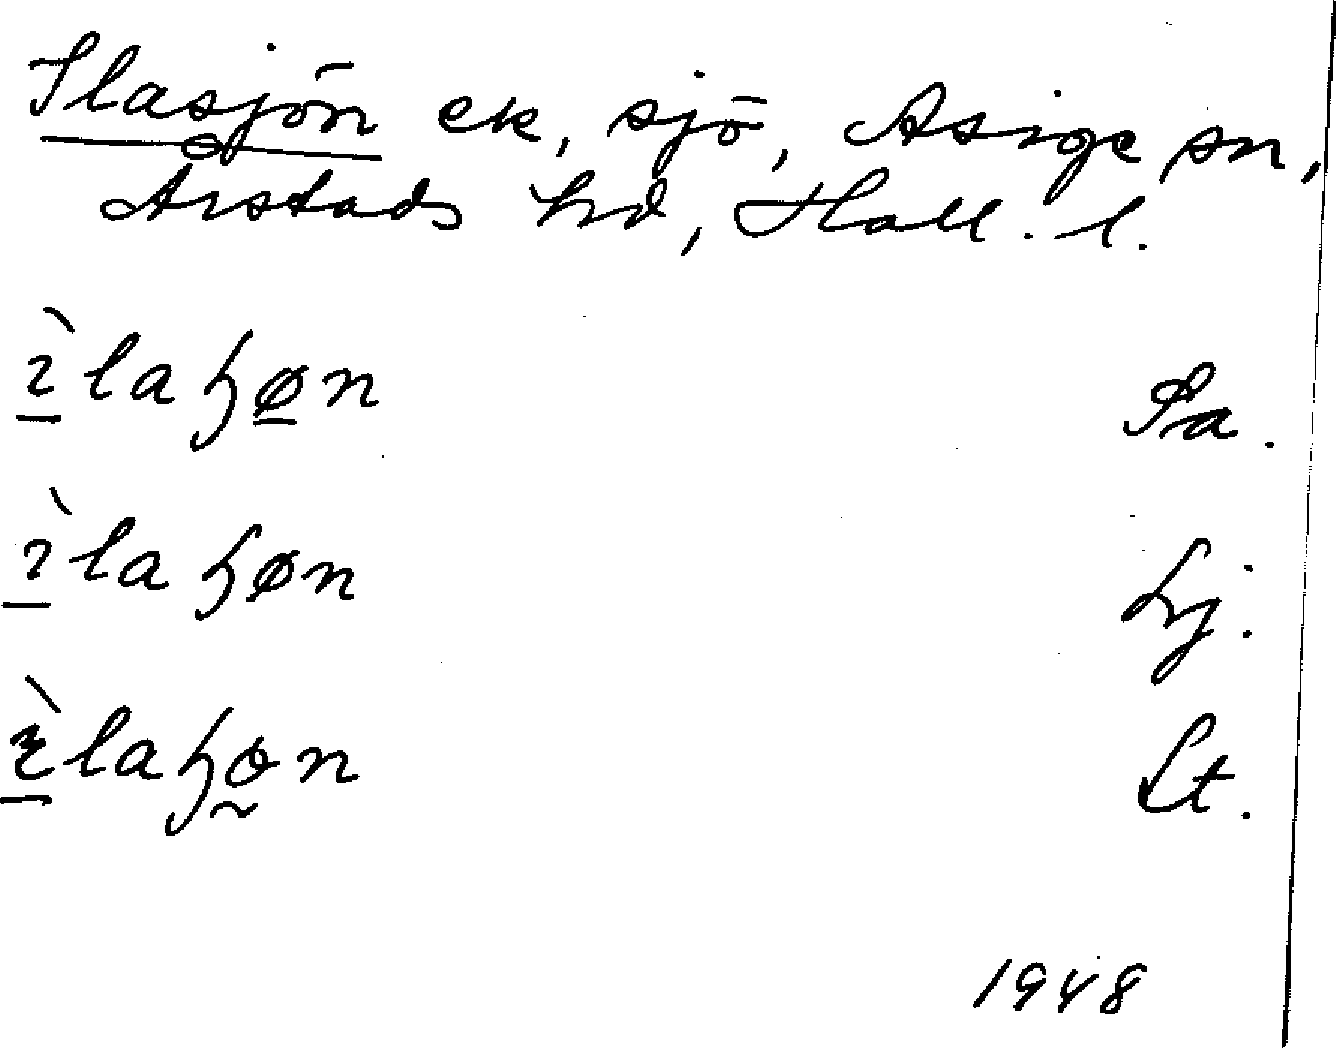 Ilasjön ek, sjö, Asige sn,
Årstads hd, Hall. l.
ı̀laɧøn Sa.
ı̀laɧøn Lj.
ı̀laɧɵn Lt.
1948